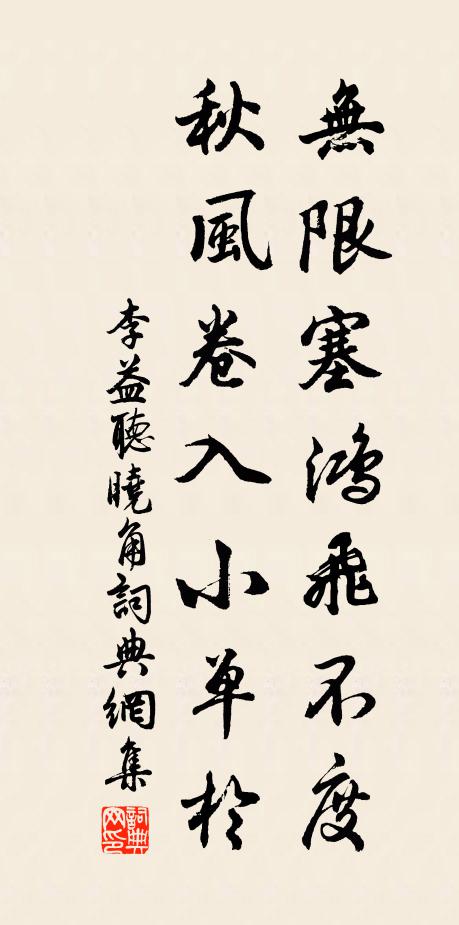 無限塞鴻飛不度
秋風卷入小单於
李益聽曉角詞典網集
詞典
网印